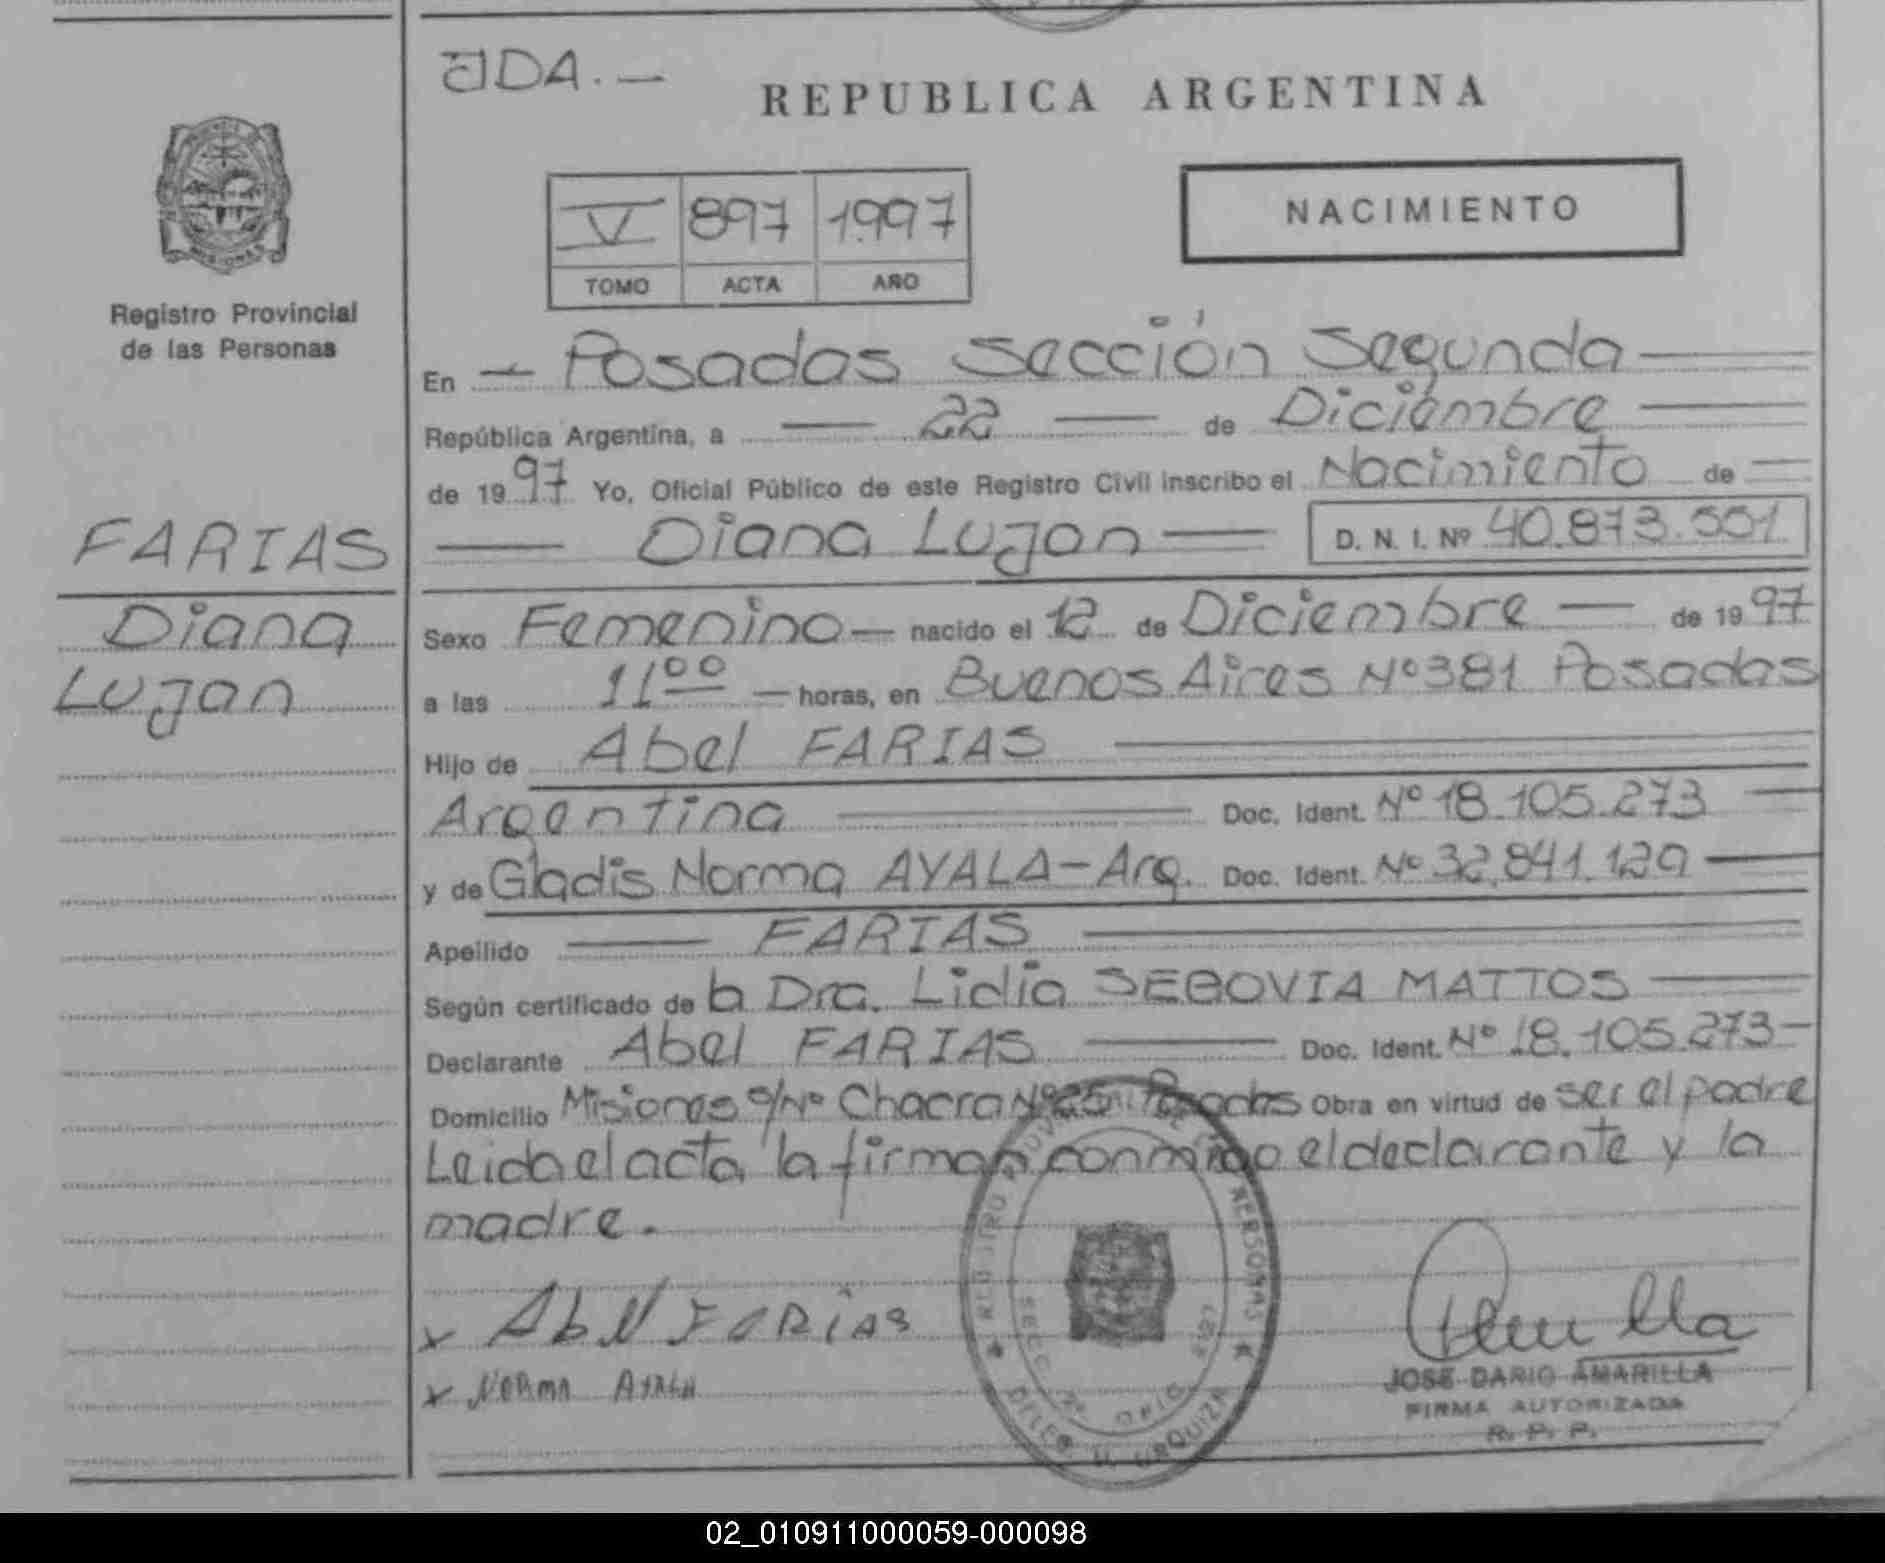 JDA.—
REPUBLICA ARGENTINA
V 897 1997
TOMO ACTA AÑO
NACIMIENTO
MISIONES
Registro Provincial
de las Personas
FARIAS
Diana
Lujan
En — Posadas Sección Segunda
República Argentina, a — 22 — de Diciembre
de 1997 Yo, Oficial Público de este Registro Civil inscribo el Nacimiento de
Diana Lujan — D. N. I. Nº 40.873.551
Sexo Femenino — nacido el 12 de Diciembre — de 1997
a las 11 00 — horas, en Buenos Aires Nº 381 Posadas
Hijo de Abel FARIAS
Argentina — Doc. Ident. Nº 18.105.273
y de Gladis Norma AYALA - Arg. Doc. Ident. Nº 32.841.129
Apellido — FARIAS
Según certificado de la Dra. Lidia SEGOVIA MATTOS
Declarante Abel FARIAS — Doc. Ident. Nº 18.105.273 —
Domicilio Misiones s/Nº Chacra Nº 25 Posadas Obra en virtud de ser el padre
Leida el acta, la firman conmigo el declarante y la
madre.
x Abel FARiAS
x NORMA AYALA
JOSE DARIO AMARILLA
FIRMA AUTORIZADA
R. P. P.
02_010911000059-000098